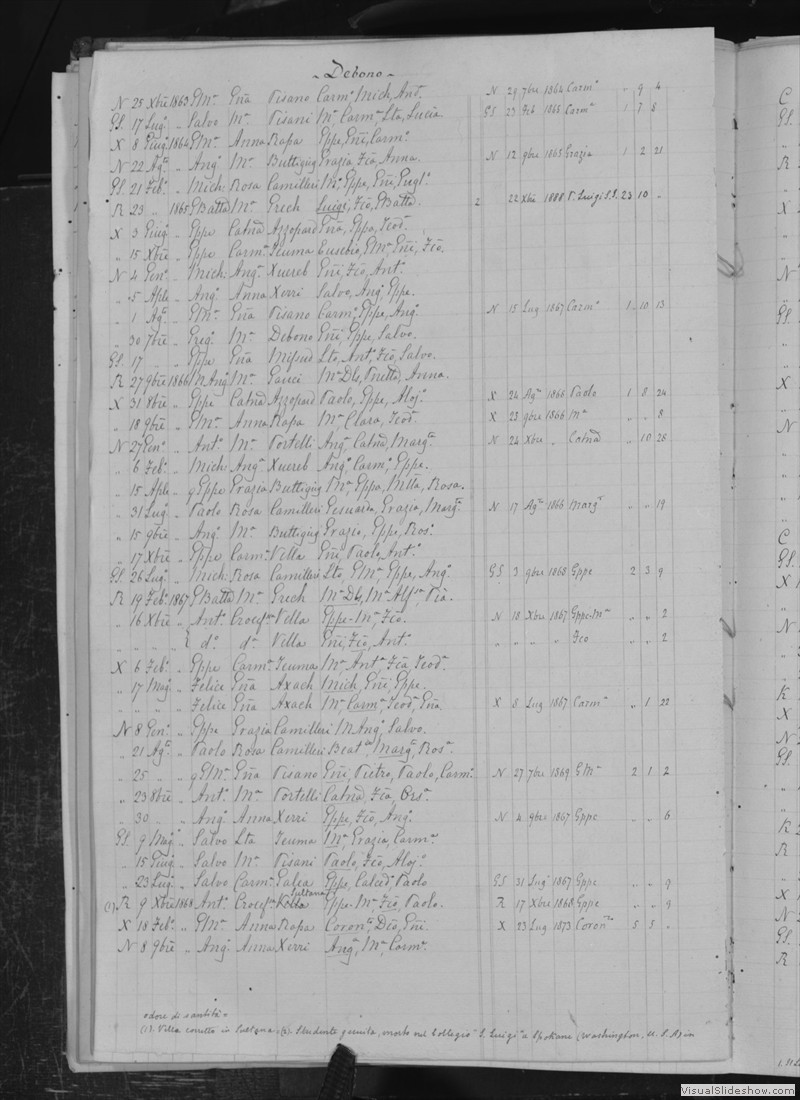 Debono
N 25 Xbre 1863 GMa Gña Pisano Carma Mich, Ant. N 29 7bre 1864 Carma " 9 4
GS. 17 Lugo " Salvo Ma Pisani Ma Carma Lta, Lucia GS 23 Feb 1865 Carma 1 7 8
X 8 Giugo 1864 GMa Anna Rapa Gppe, Gñi, Carma
N 22 Ago " Ango Ma Buttigieg Grazia, Fca, Anna. N 12 9bre 1865 Grazia 1 2 21
GS. 21 Febo " Mich. Rosa Camilleri Ma Gppa, Gñi, Gugl.
R 23 " 1865 GBatta Ma Grech Luigi, Fco, GBatta. 2 22 Xbre 1888 P. Luigi S.S. 23 10 "
X 3 Giugo " Gppe Catna Azzopard Gña, Gppa, Teod.
" 15 Xbre " Gppe Carma Teuma Eusebio, GMa, Gñi, Fco.
N 4 Geno " Mich. Anga Xuereb Gñi, Fco, Anto
" 5 Aple " Ango Anna Xerri Salvo, Ango, Gppe.
" 1 Ago " GMa Gña Pisano Carmo, Gppe, Ango N 15 Lug 1867 Carmo 1 10 13
" 30 7bre " Grego Ma Debono Gñi, Gppe, Salvo.
GS. 17 " " Gppe Gña Mifsud Lto, Anto, Fco, Salvo.
R 27 9bre 1866 MAngo Ma Gauci Ma Dls, Pnetta, Anna.
X 31 8bre " Gppe Catna Azzopard Paolo, Gppe, Aloj. X 24 Ago 1866 Paolo 1 8 24
" 18 9bre " GMa Anna Rapa Ma Clara, Teod. X 23 9bre 1866 Ma " " 8
N 27 Geno " Anto Ma Portelli Anga, Catna, Marga N 24 Xbre " Catna " 10 28
" 6 Febo " Mich. Anga Xuereb Anga, Carma, Gppe.
" 15 Aple " qGppe Grazia Buttigieg Ma, Gppa, Mlla, Rosa.
" 31 Lugo " Paolo Rosa Camilleri Gesuarda, Grazia, Marga N 17 Ago 1866 Marga " " 19
" 15 9bre " Ango Ma Buttigieg Grazia, Gppe, Rosa
" 17 Xbre " Gppe Carma Villa Gñi, Paolo, Anto
GS. 26 Lugo " Mich. Rosa Camilleri Lto, GMa, Gppe, Ango GS 3 9bre 1868 Gppe 2 3 9
R 19 Febo 1867 GBatta Ma Grech Ma Dls, Ma Alfa, Pia.
" 16 Xbre " Anto Crocefa Villa Gppe-Ma, Fco. N 18 Xbre 1867 Gppe-Ma " " 2
" " " " { do da Villa Gñi, Fco, Anto " " " " Fco " " 2
X 6 Febo " Gppe Carma Teuma Ma Anta, Fca, Teod.
" 17 Mago " Felice Gña Axach Mich, Gñi, Gppe.
" " " " Felice Gña Axach Ma Carma, Teoda, Gña X 8 Lug 1867 Carma " 1 22
N 8 Geno " Gppe Grazia Camilleri MAngo, Salvo.
" 21 Ago " Paolo Rosa Camilleri Beata, Marga, Rosa
" 25 " " qGMa Gña Pisano Gñi, Pietro, Paolo, Carmo N 27 7bre 1869 GMa 2 1 2
" 23 8bre " Anto Ma Portelli Catna, Fca, Orsa
" 30 " " Ango Anna Xerri Gppe, Fco, Ango N 4 9bre 1867 Gppe " " 6
GS. 9 Mago " Salvo Lta Teuma Ma, Grazia, Carma
" 15 Giugo " Salvo Ma Pisani Paolo, Fco, Aloj.
" 23 Lugo " Salvo Carma Galea Gppe, Calced., Paolo GS 31 Lug 1867 Gppe " " 9
Sultana
(1) R 9 Xbre 1868 Anto Crocefa Villa Gppe-Ma Fco, Paolo. R 17 Xbre 1868 Gppe " " 9
X 18 Febo " GMa Anna Rapa Corona, Dco, Gñi. X 23 Lug 1873 Corona 5 5 "
N 8 9bre " Ango Anna Xerri Anga, Ma, Carma
odore di santità =
(1). Villa corretto in Sultana =(2). Studente gesuita, morto nel Collegio "S. Luigi" a Spokane (Washington, U.S.A) in
C
GS.
R
X
N
GS.
X
N
C
GS.
X
N
X
K
X
N
GS.
K 2
R
X
N
GS.
R
VisualSlideshow.com